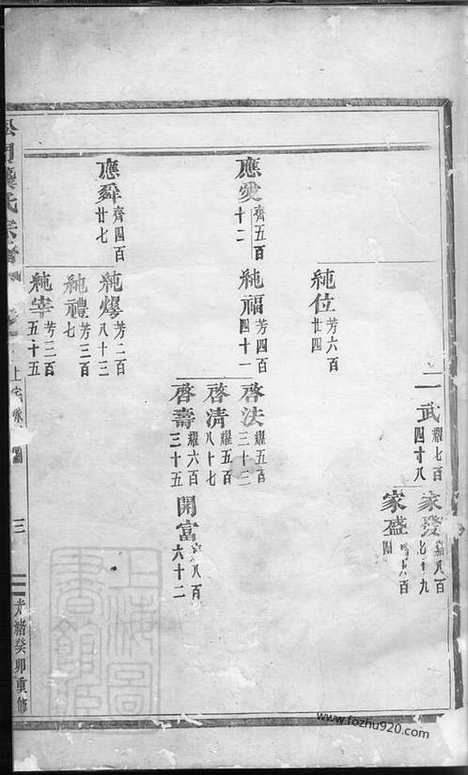 二武 耀七百四十八
家發 七十九
家盛
純位 芳六百廿四
應變 齊五百十二
純福 芳四百四十一
啓法 耀五百三十三
啓清 耀五百八十七
啓壽 耀六百三十五
開富 八百六十二
應舜 齊四百廿七
純爆 芳二百八十三
純禮 芳三百七
純宰 芳三百五十五
氏宗譜
三
光緒癸卯重修
上海圖書館藏
www.fozhu920.com